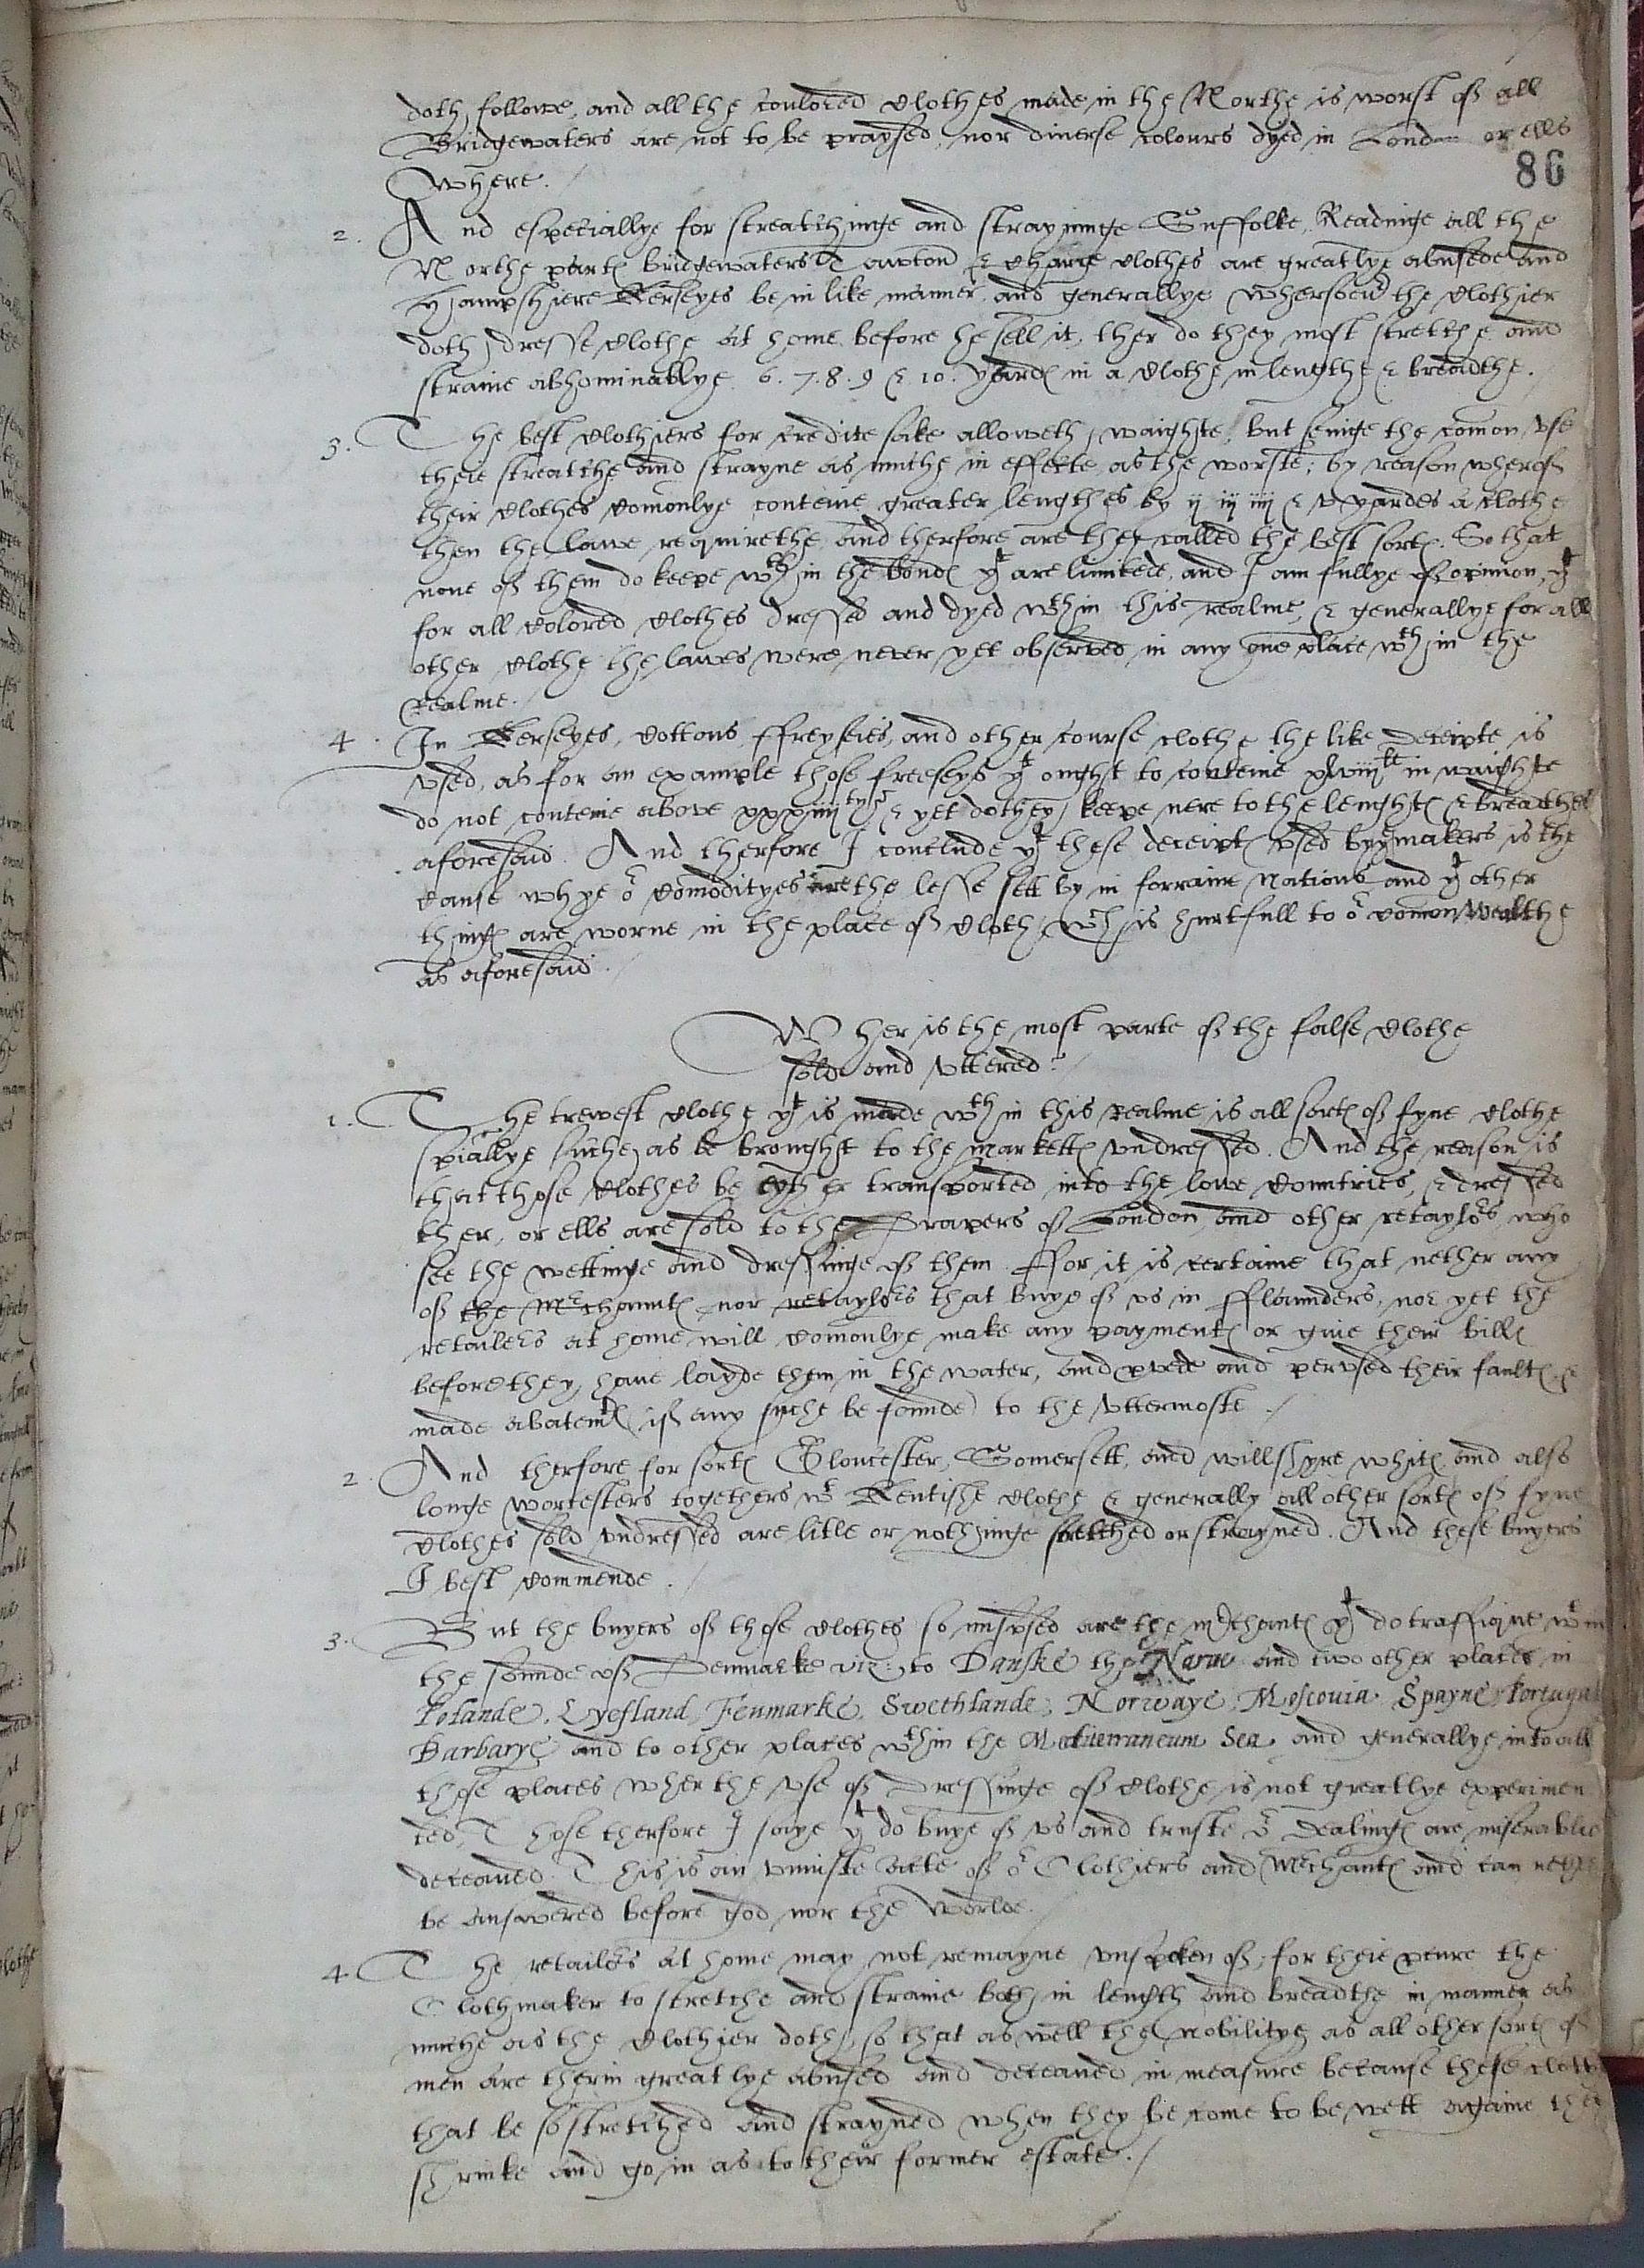 doth followe, and all the coulored clothes made in the Northe is worst of all
Bridgewaters are not to be praysed, nor diuerse colours dyed in London or ells
where.
86
2. And especiallye for streatchinge and strayninge Suffolke, Readinge all the
Northe partes bridgewaters Tawton & charde clothes are greatlye abusede and
Hampshiere Kerseyes be in like manner, and generallye whersoeur the clothier
doth dresse clothe at home before he sell it, ther do they most stretche and
straine abhominablye 6. 7. 8. 9 & 10. yardes in a clothe in lengthe & breadthe.
3. The best clothiers for credite sake alloweth waighte, but seinge the comon vse
theie streatche and strayne as muche in effecte as the worste; by reason wherof
their clothes comonlye conteine greater lengthes by ij iij iiij & v yardes a clothe
then the lawe requirethe and therfore are they called the best sortes. So that
none of them do keepe wth in the bondes yt are limitede, and I am fullye of opinion, yt
for all colored clothes dressed and dyed wthin this realme, & generallye for all
other clothe the lawes were never yet observed in any one place wthin the
Realme.
4. In Kerseyes, cottons, ffreyseies, and other course clothe the like deceipte is
vsed, as for an example those freeseys yt ought to conteine xlviij in waighte
do not conteine above xxxiiij & yet do they keepe nere to the lenghtes & breadthes
aforesaid. And therfore I conclude yt these deceiptes vsed by ye makers is the
cause whye or comodityes are the lesse sett by in forraine Nations and yt other
thinges are worne in the place of cloth, wch is hurtfull to or comon Wealthe
as aforesaid.
Wher is the most parte of the false clothe
solde and vttered?
1. The trewest clothe yt is made wth in this realme is all sortes of fyne clothe
spiallye suche as be brought to the markettes vndressed. And the reason is
that those clothes be eyther transported into the lowe countries, & dressed
ther, or ells are sold to the Drapers of London and other retaylors who
see the wettinge and dressinge of them. ffor it is certaine that nether any
of the Mrchauntes nor retaylors that buye of vs in fflaunders, nor yet the
retailers at home will comonlye make any paymentes or giue their billes
before they haue layde them in the water, and pvede and pervsed their faultes &
made abatemtes if any suche be founde to the vttermoste.
2. And therfore for sortes Gloucester, Somersett, and willshyre whites and also
longe worcesters togethers wt Kentishe clothe & generally all other sortes of fyne
clothes sold vndressed are litle or nothinge stretched or strayned. And these buyers
I best commende.
3. But the buyers of those clothes so misvsed are the mrchantes yt do traffique wt in
the sounde of Denmarke viz: to Danske the Narue and two other places in
Polande. Lyefland, Fenmarke, Swethlande, Norwaye, Moscouia, Spayne, Portugal
Barbarye and to other places wthin the Mediterraneum Sea, and generallye into all
those places wher the vse of Dressinge of clothe is not greatlye experimen
ted, Those therfore I saye yt do buye of vs and truste or Dealinges are miserablie
deceaued. This is an vniuste acte of or Clothiers and Mrchantes and can nether
be answered before god nor the worlde.
4. The retailors at home may not remayne vnspoken of, for theie pcure the
Clothmaker to stretche and straine both in length and breadthe in manner as
muche as the clothier doth, so that as well the nobilitye as all other sortes of
men are therin greatlye abused and deceaued in measure because these clothes
that be so stretched and strayned when they be come to be wett againe they
shrinke and go in as to their former estate.